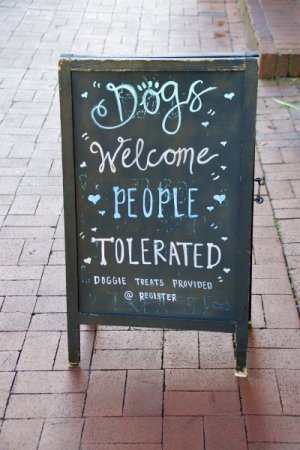 Dogs
Welcome
PEOPLE
TOLERATED
DOGGIE TREATS PROVIDED
@ REGISTER